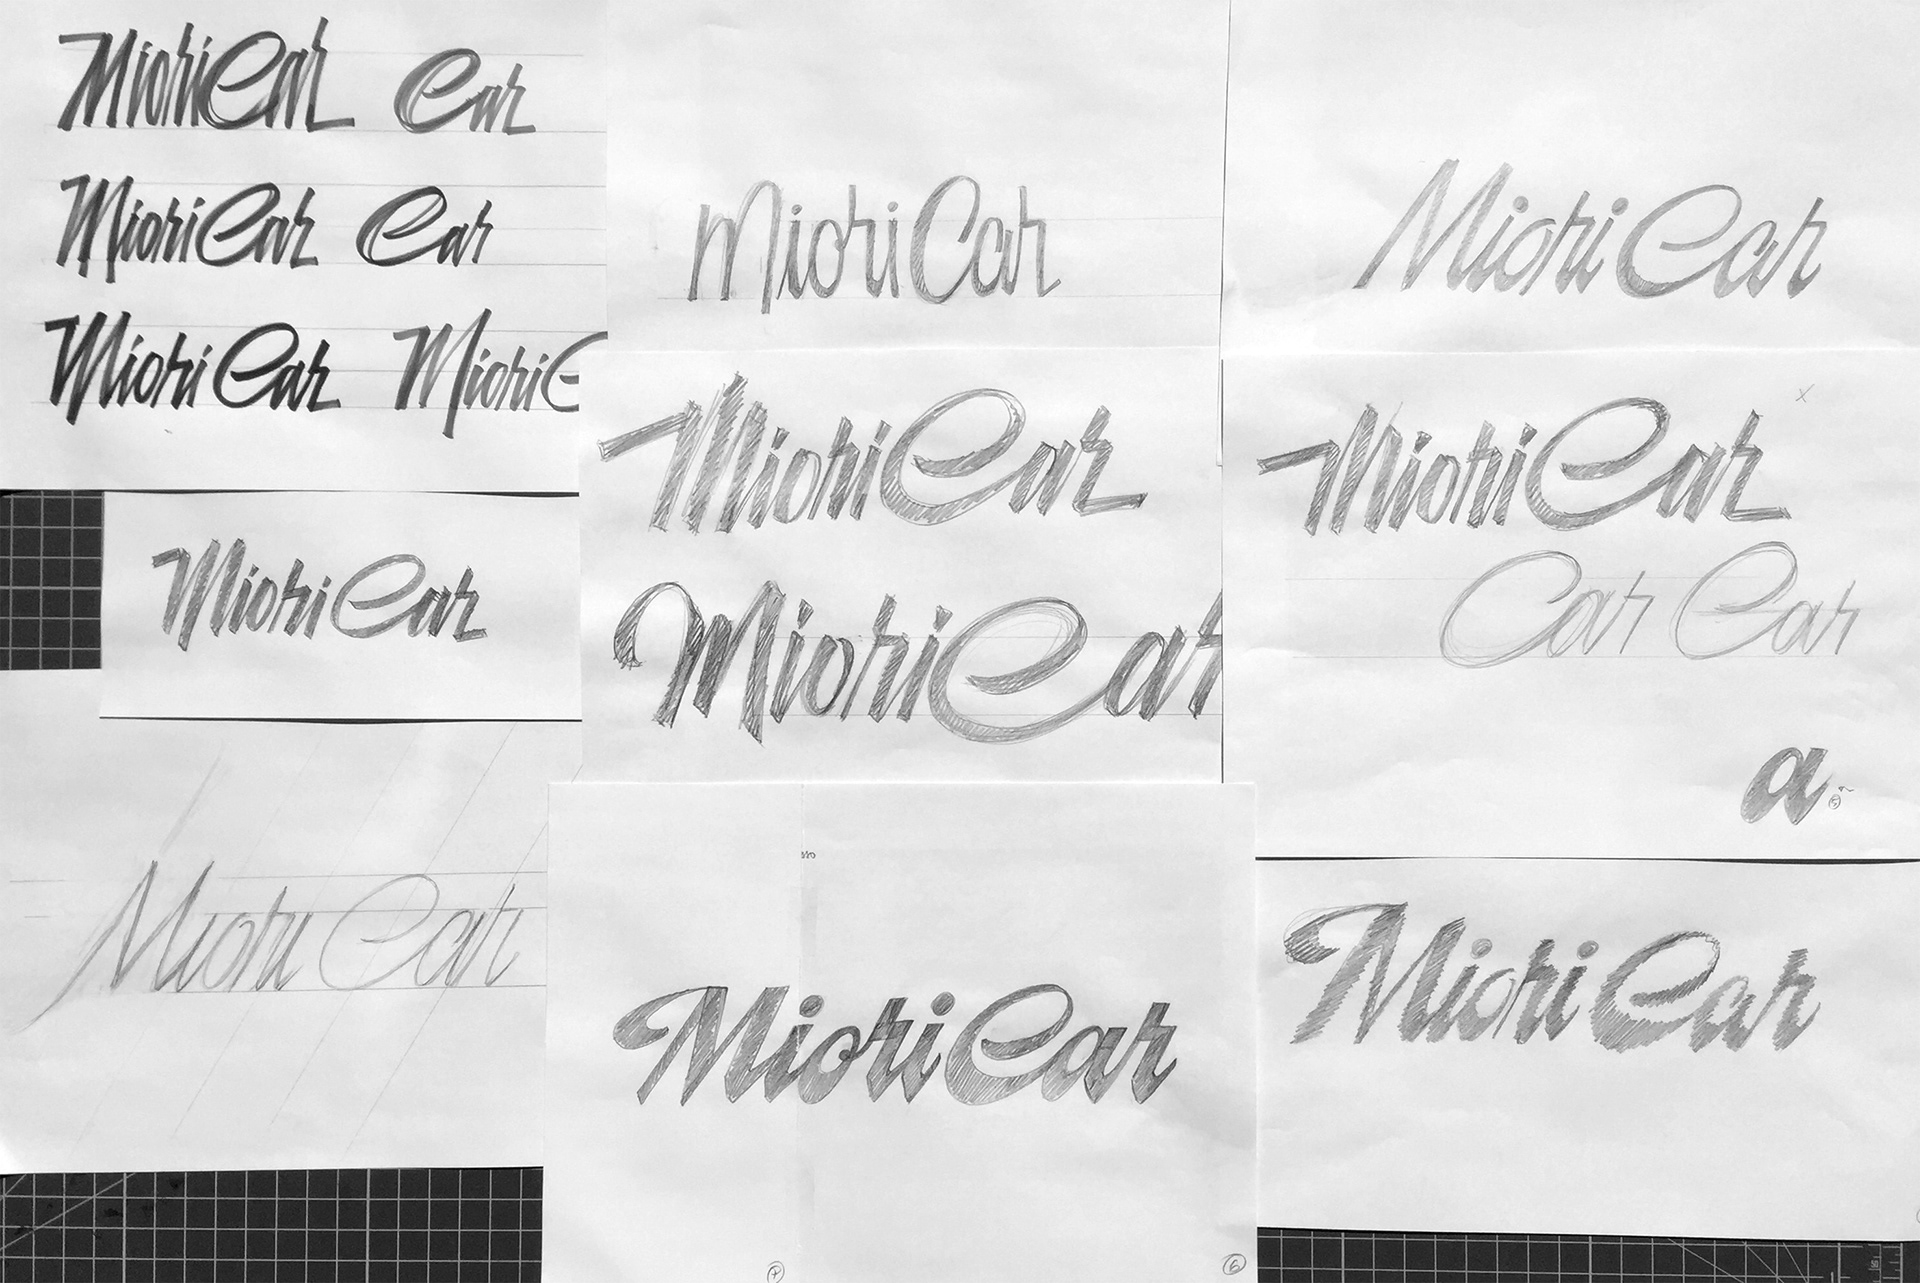 MioriCar Car
MioriCar Car
MioriCar MioriC
MioriCar
MioriCar
MioriCar
MioriCar
MioriCar
MioriCar
MioriCar
Car Car
a
5
MioriCar
MioriCar
6
MioriCar